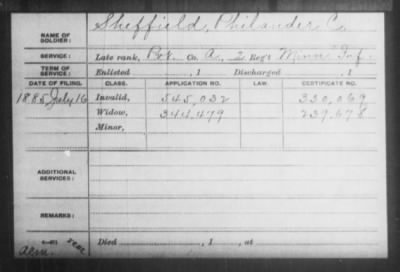 NAME OF SOLDIER: Sheffield, Philander C.
SERVICE: Late rank, Pvt. Co. A, 2 Reg't Minn Inf.
TERM OF SERVICE: Enlisted , 1 Discharged , 1
DATE OF FILING. CLASS. APPLICATION NO. LAW. CERTIFICATE NO.
1885, July 16 Invalid, 545,032 330,069
Widow, 344,479 239,678
Minor,
ADDITIONAL SERVICES:
REMARKS:
Died , 1 , at